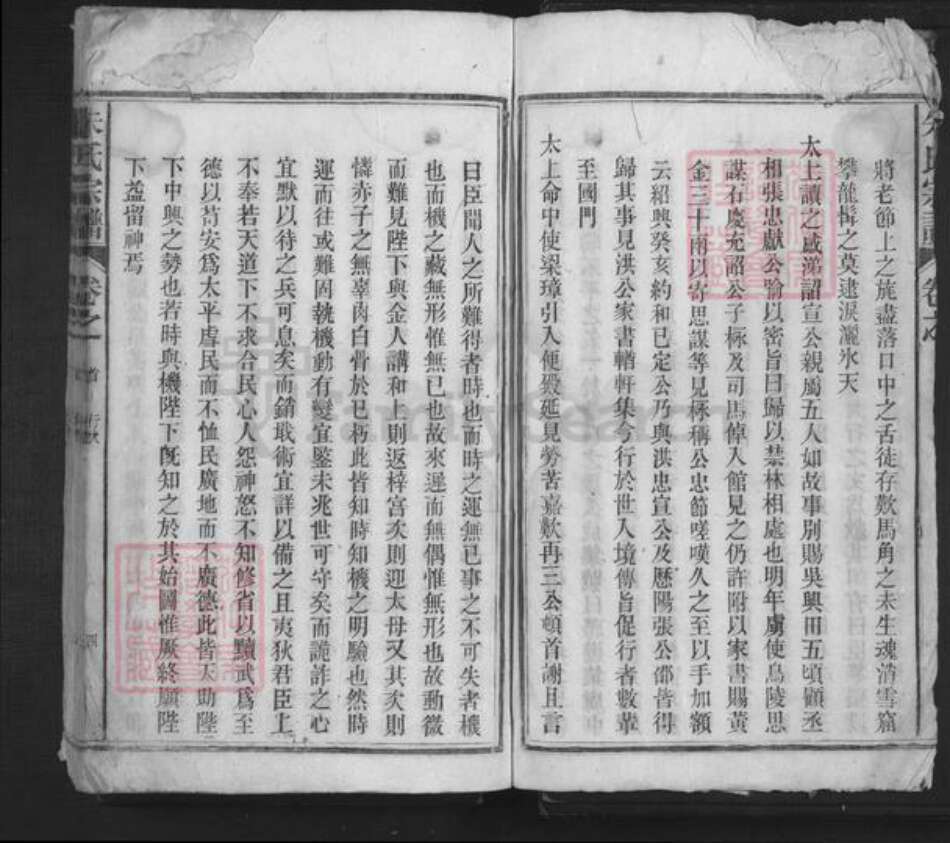 將老節上之旄盡落口中之舌徒存歎馬角之未生魂消雪窖
攀龍髯之莫逮淚灑氷天
太上讀之感涕詔宣公親屬五人如故事別賜吳興田五頃顧丞
相張忠獻公喻以密旨曰歸以禁林相處也明年虜使烏陵思
謀石慶充詔公子楙及司馬倬入館見之仍許附以家書賜黃
金三十兩以寄思謀等見楙稱公忠節嗟嘆久之至以手加額
云紹興癸亥約和已定公乃與洪忠宣公及歷陽張公邵皆得
歸其事見洪公家書輶軒集今行於世入境傳旨促行者數輩
至國門
太上命中使梁璋引入便殿延見勞苦嘉歎再三公頓首謝且言
曰臣聞人之所難得者時也而時之運無已事之不可失者機
也而機之藏無形惟無已也故來遲而無偶惟無形也故動微
而難見陛下與金人講和上則返梓宮次則迎太母又其次則
憐赤子之無辜肉白骨於已朽此皆知時知機之明驗也然時
運而往或難固執機動有變宜鑒未兆世可守矣而詭詐之心
宜默以待之兵可息矣而銷戢術宜詳以備之且夷狄君臣上
不奉若天道下不求合民心人怨神怒不知修省以黷武爲至
德以苟安爲太平虐民而不恤民廣地而不廣德此皆天助陛
下中興之勢也若時與機陛下既知之於其始圖惟厥終願陛
下益留神焉
朱氏宗譜
卷之